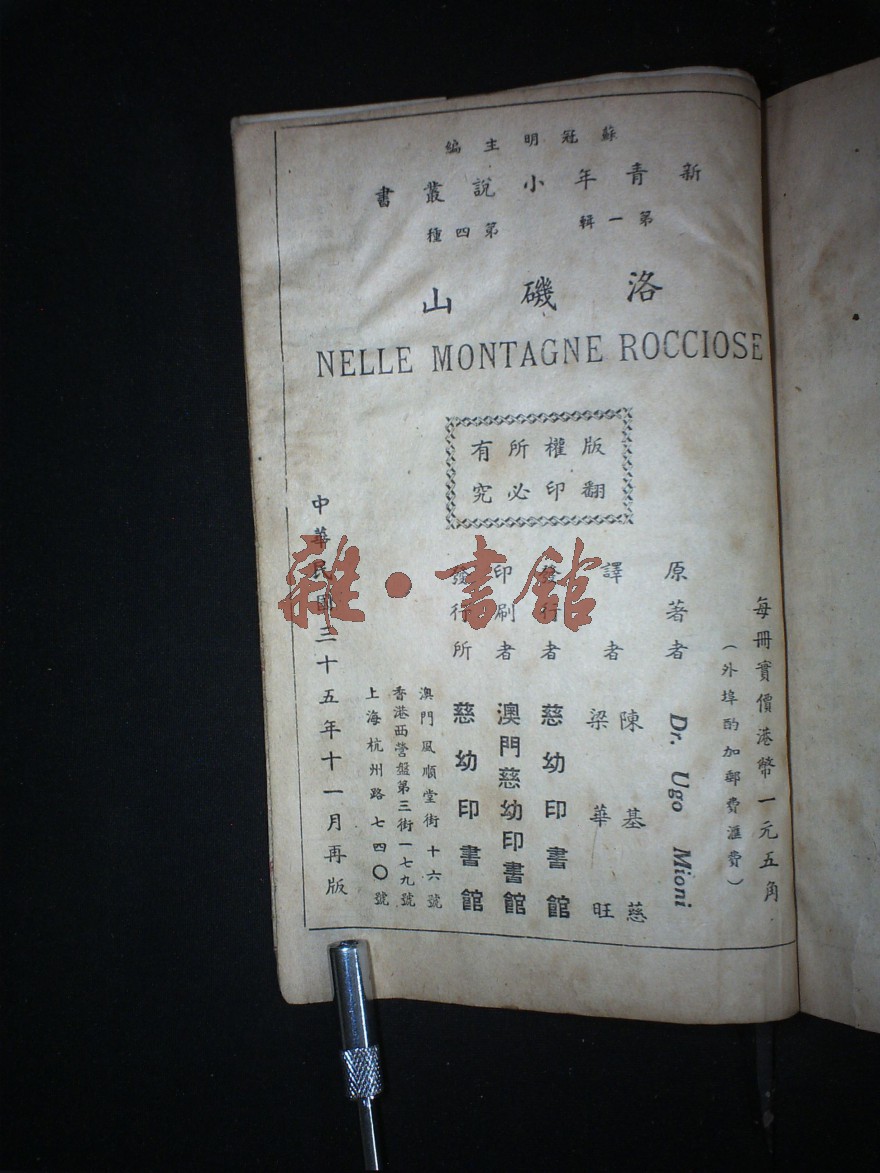 蘇冠明主編
新青年小說叢書
第一輯 第四種
洛磯山
NELLE MONTAGNE ROCCIOSE
版權所有
翻印必究
每冊實價港幣一元五角
（外埠酌加郵費滙費）
原著者 Dr. Ugo Mioni
譯者 陳基慈
梁華旺
發行者 慈幼印書館
印刷者 澳門慈幼印書館
發行所 慈幼印書館
澳門風順堂街十六號
香港西營盤第三街一七九號
上海杭州路七四〇號
中華民國三十五年十一月再版
雜·書館